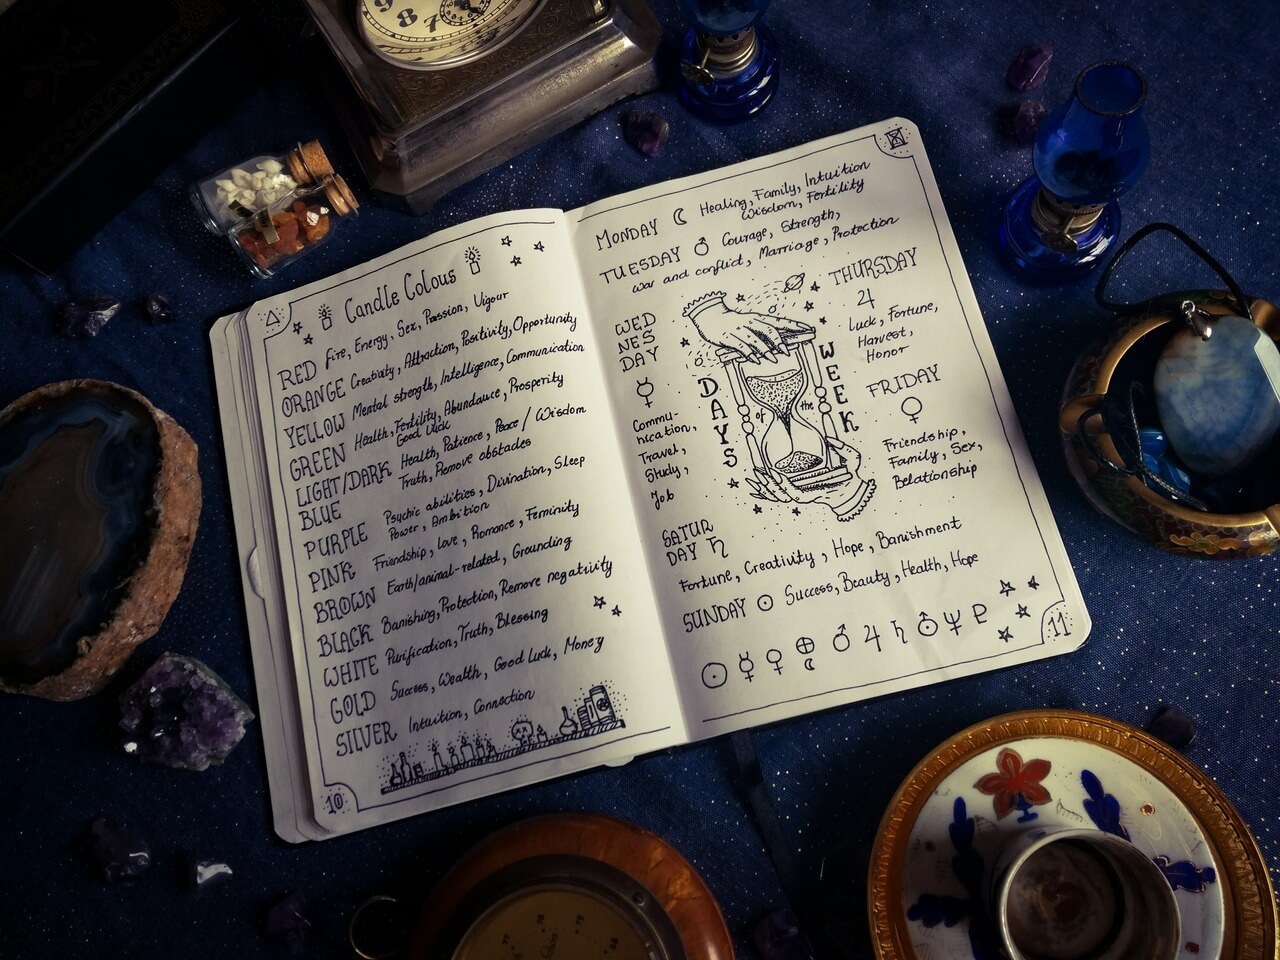 9 8 7
Candle Colous
RED Fire, Energy, Sex, Passion, Vigour
ORANGE Creativity, Attraction, Positivity, Opportunity
YELLOW Mental strength, Intelligence, Communication
GREEN Health, Fertility, Abundance, Prosperity
Good Luck
LIGHT/DARK Health, Patience, Peace/Wisdom
BLUE Truth, Remove obstacles
PURPLE Psychic abilities, Divination, Sleep
Power, Ambition
PINK Friendship, Love, Romance, Feminity
BROWN Earth/animal-related, Grounding
BLACK Banishing, Protection, Remove negativity
WHITE Purification, Truth, Blessing
GOLD Success, Wealth, Good Luck, Money
SILVER Intuition, Connection
10
MONDAY ☾ Healing, Family, Intuition
Wisdom, Fertility
TUESDAY ♂ Courage, Strength,
War and conflict, Marriage, Protection
WED
NES
DAY
☿
Commu-
nication,
Travel,
Study,
Job
DAYS
of
the
WEEK
THURSDAY
♃
Luck, Fortune,
Harvest,
Honor
FRIDAY
♀
Friendship,
Family, Sex,
Relationship
SATUR
DAY ♄
Fortune, Creativity, Hope, Banishment
SUNDAY ☉ Success, Beauty, Health, Hope
☉ ☿ ♀ ⊕ ☾ ♂ ♃ ♄ ⛢ ♆ ♇
11